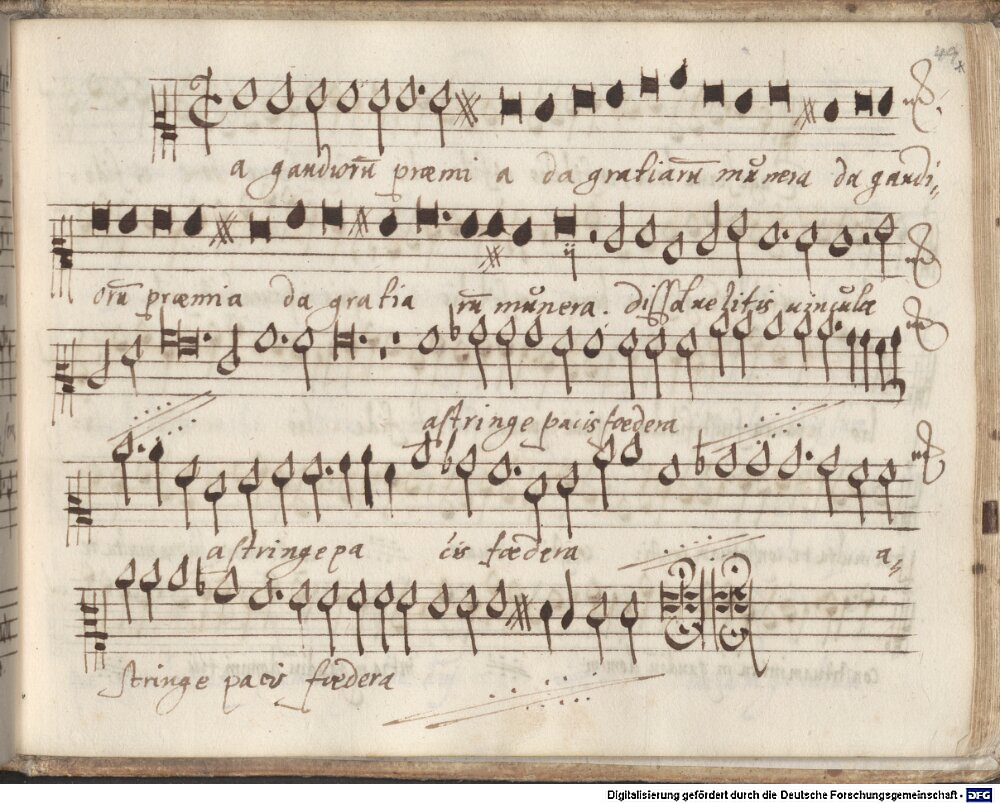 a gaudiorū præmi a da gratiarū mūnera da gaudi,,
orū præmia da gratia rū mūnera. dissolue litis uincula
astringe pacis fœdera
astringe pa cis fœdera a,,
stringe pacis fœdera
Digitalisierung gefördert durch die Deutsche Forschungsgemeinschaft - DFG